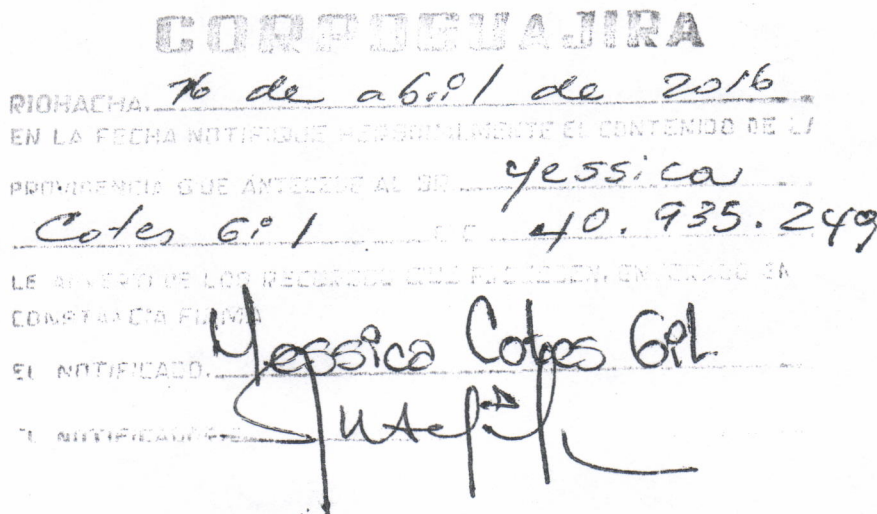 CORPOGUAJIRA
RIOHACHA. 16 de abril de 2016
EN LA FECHA NOTIFIQUE PERSONALMENTE EL CONTENIDO DE LA
PROVIDENCIA QUE ANTECEDE AL SR yessica
Cotes Gil C.C. 40.935.249
LE ADVERTI DE LOS RECURSOS QUE PROCEDEN, EN
CONSTANCIA FIRMA
EL NOTIFICADO. Yessica Cotes Gil.
EL NOTIFICADOR